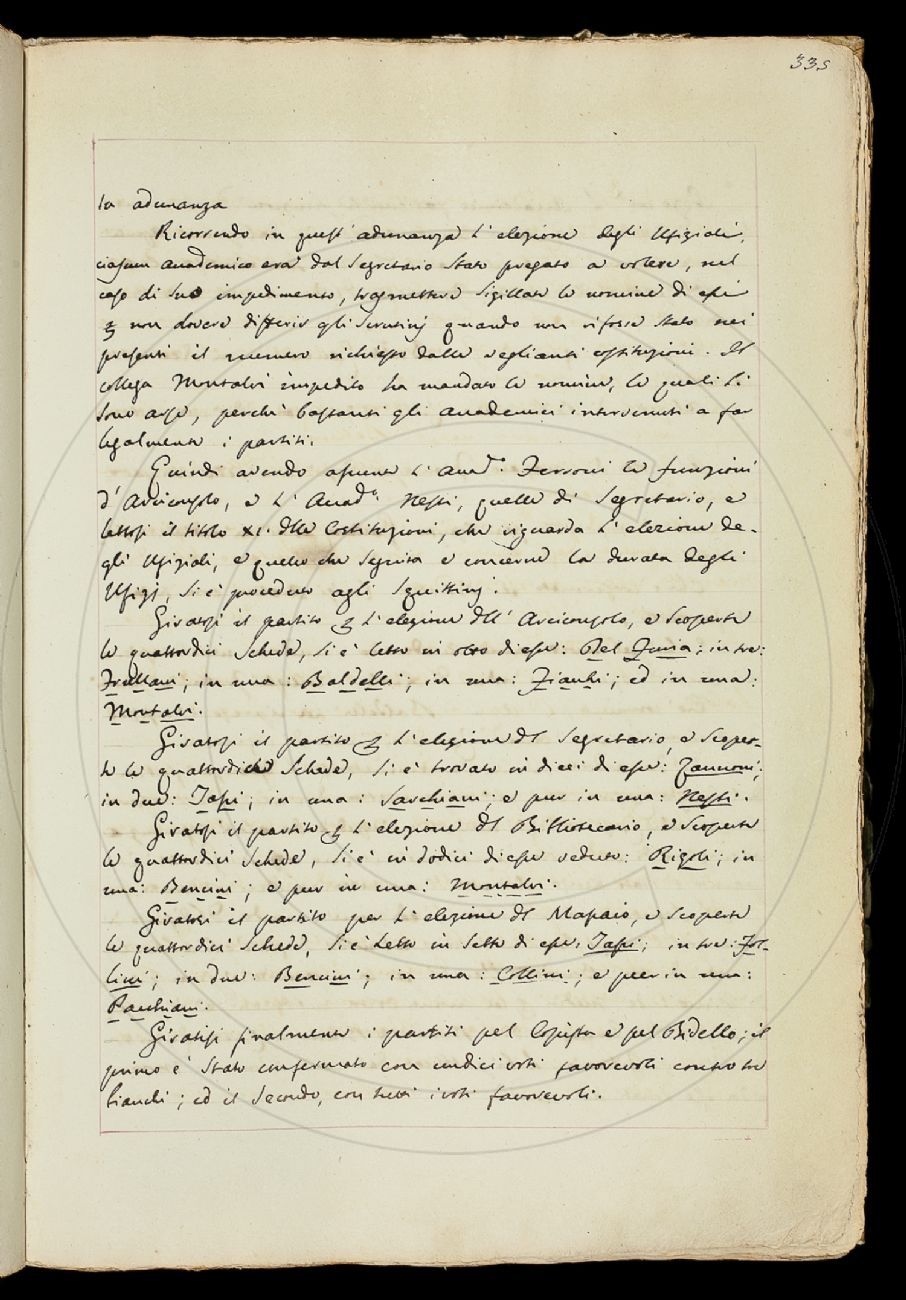 335
la adunanza
Ricorrendo in quest'adunanza l'elezione degli Ufiziali,
ciascun Accademico era dal Segretario stato pregato a volere, nel
caso di suo impedimento, trasmettere sigillate le nomine di essi
non dovere differir gli Scrutinj quando non vi fosse stato nei
presenti il numero richiesto dalle veglianti costituzioni. Il
collega Montalvi impedito ha mandato le nomine, le quali si
sono arse, perchè bastanti gli Accademici intervenuti a far
legalmente i partiti.
Quindi avendo assunte l'Accad.º Ferroni le funzioni
d'Arciconsolo, e l'Accad.º Nesti, quelle di Segretario, e
lettosi il titolo XI. dlle Costituzioni, che riguarda l'elezione de-
gli Ufiziali, e quello che seguita e concerne la durata degli
Ufizj, si è proceduto agli Squittinj.
Giratosi il partito l'elezione dll'Arciconsolo, e scoperte
le quattordici Schede, si è letto in otto di esse: Del Furia; in tre:
Frullani; in una: Baldelli; in una: Fianhi; ed in una:
Montalvi.
Giratosi il partito l'elezione dl Segretario, e scoper-
te le quattordici Schede, si è trovato in dieci di esse: Zannoni;
in due: Tassi; in una: Sarchiani; e pur in una: Nesti.
Giratosi il partito l'elezione dl Bibliotecario, e scoperte
le quattordici Schede, si è in dodici di esse veduto: Rigoli; in
una: Bencini; e pur in una: Montalvi.
Giratosi il partito per l'elezione dl Massaio, e scoperte
le quattordici Schede, si è letto in sette di esse: Tassi; in tre: Fol-
lini; in due: Bencini; in una: Collini; e pur in una:
Pacchiani.
Giratisi finalmente i partiti pel Copista e pel Bidello; il
primo è stato confermato con undici voti favorevoli contro tre
bianchi; ed il secondo, con tutti i voti favorevoli.